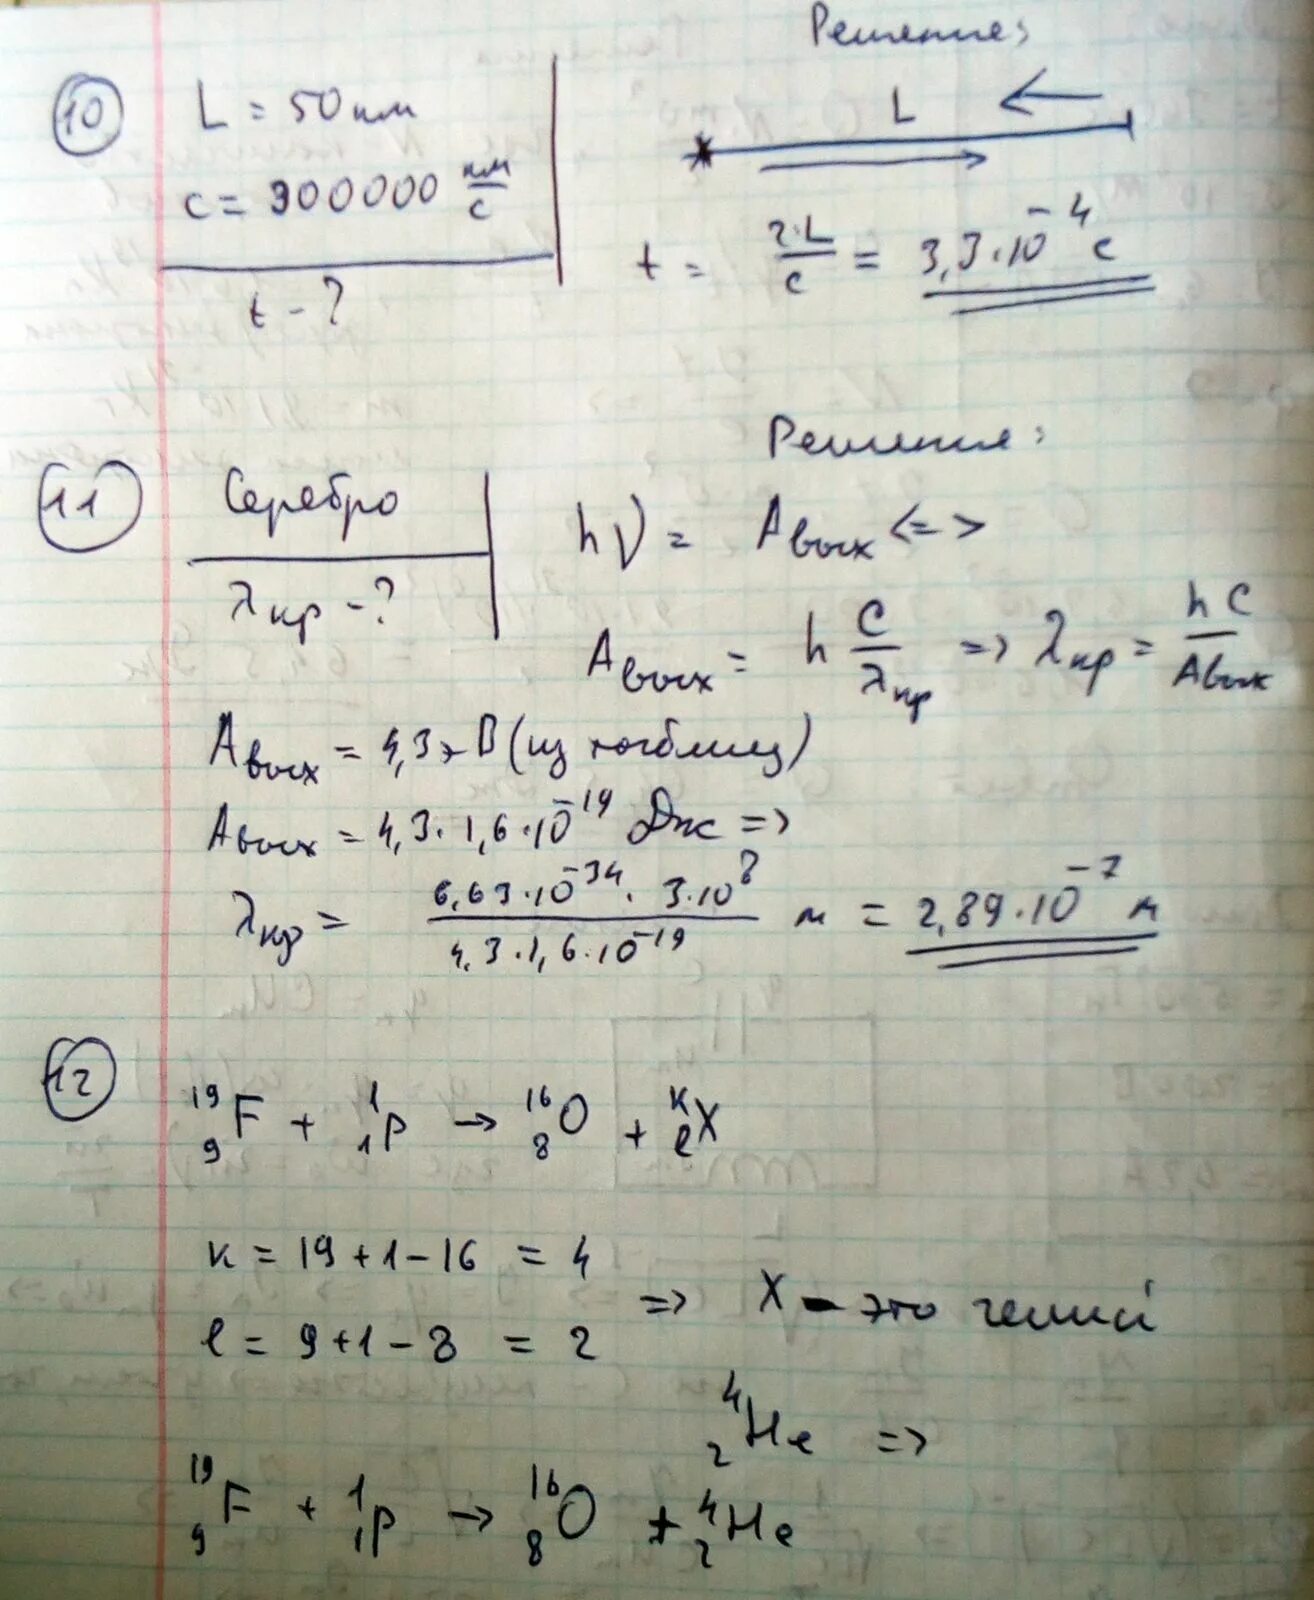 Решение:
10
L = 50 км
c = 300000 км/с
t - ?
L
t = 2·L/c = 3,3·10⁻⁴ c
Решение:
11
Серебро
λкр - ?
hν = Aвых <=>
Aвых = h c/λкр => λкр = hc/Aвых
Aвых = 4,3 эВ (из таблиц)
Aвых = 4,3·1,6·10⁻¹⁹ Дж =>
λкр = 6,63·10⁻³⁴·3·10⁸ / 4,3·1,6·10⁻¹⁹ м = 2,89·10⁻⁷ м
12
¹⁹₉F + ¹₁p → ¹⁶₈O + ᵏₗX
k = 19+1-16 = 4
l = 9+1-8 = 2
=> X - это гелий
⁴₂He =>
¹⁹₉F + ¹₁p → ¹⁶₈O + ⁴₂He